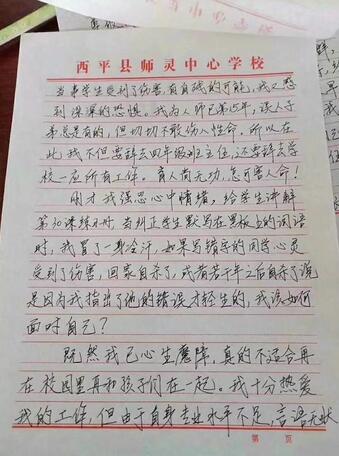 西平县师灵中心学校
当事学生受到了伤害有自残的可能,我又感
到深深的恐惧。我为人师已第15年,误人子
弟总是有的,但切切不敢伤人性命,所以在
此我不但要辞去四年级班主任,还要辞去学
校一应所有工作。育人尚无功,怎可害人命!
刚才我强忍心中情绪,给学生讲解
第30课练习册,当纠正学生默写在黑板上的词语
时,我冒了一身冷汗,如果写错字的同学心灵
受到了伤害,回家自杀了,或者若干年之后自杀了说
是因为我指出了他的错误才轻生的,我该如何
面对自己?
既然我已心生魔障,真的不适合再
在校园里再和孩子们在一起。我十分热爱
我的工作,但由于自身专业水平不足,言语无状
第 页